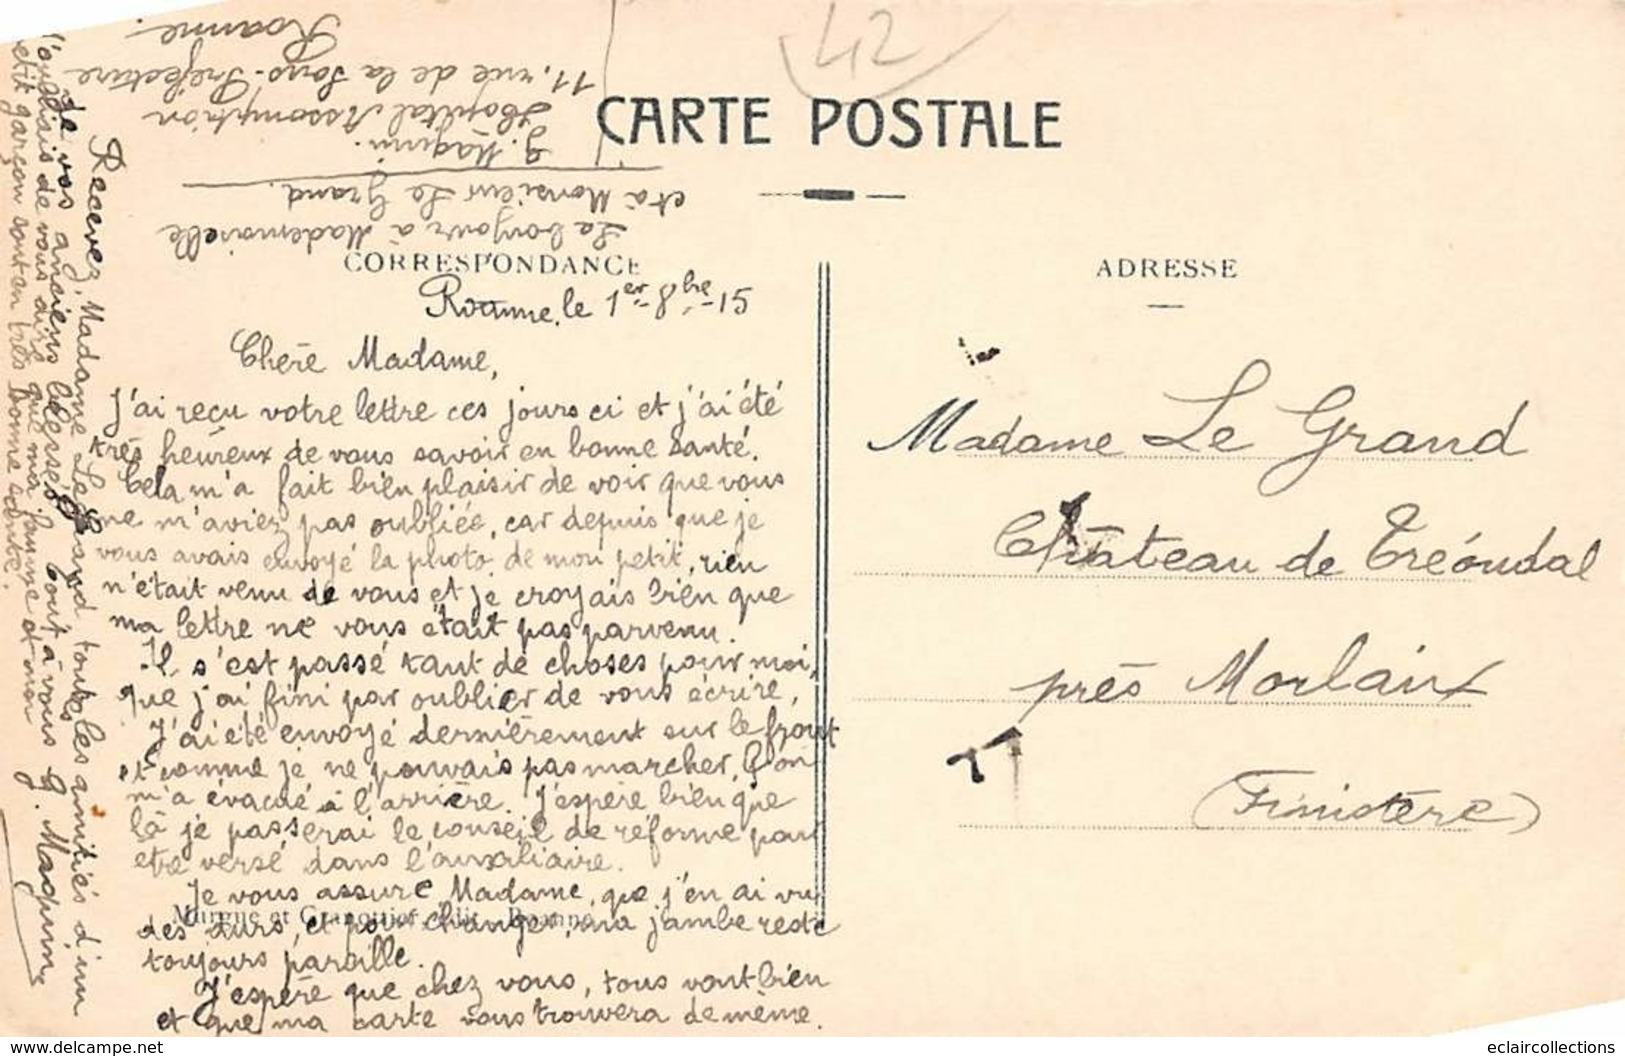 42
CARTE POSTALE
CORRESPONDANCE
ADRESSE
Roanne, le 1er-8bre-15
Chère Madame,
J'ai reçu votre lettre ces jours ci et j'ai été
très heureux de vous savoir en bonne santé.
Cela m'a fait bien plaisir de voir que vous
ne m'aviez pas oubliée, car depuis que je
vous avais envoyé la photo de mon petit, rien
n'était venu de vous et je croyais bien que
ma lettre ne vous était pas parvenu.
Il s'est passé tant de choses pour moi,
que j'ai fini par oublier de vous écrire,
J'ai été envoyé dernièrement sur le front
et comme je ne pouvais pas marcher, l'on
m'a évacué à l'arrière. J'espère bien que
là je passerai le conseil de réforme pour
etre versé dans l'auxiliaire.
Je vous assure Madame, que j'en ai vu
des durs, et pour changer, ma jambe reste
toujours pareille.
J'espère que chez vous, tous vont bien
et que ma carte vous trouvera de même.
Recevez, Madame Le Grand, toutes les amitiés d'un
de vos anciens blessés. Tout à vous G. Maquin
J'oubliais de vous dire que ma femme et mon
petit garçon sont en très bonne santé.
Le bonjour à Mademoiselle
et à Monsieur Le Grand.
G. Maquin.
Hôpital Assomption
11, rue de la Sous-Préfecture
Roanne.
Madame Le Grand
Château de Tréoudal
près Morlaix
(Finistère)
Roanne
eclaircollections
www.delcampe.net